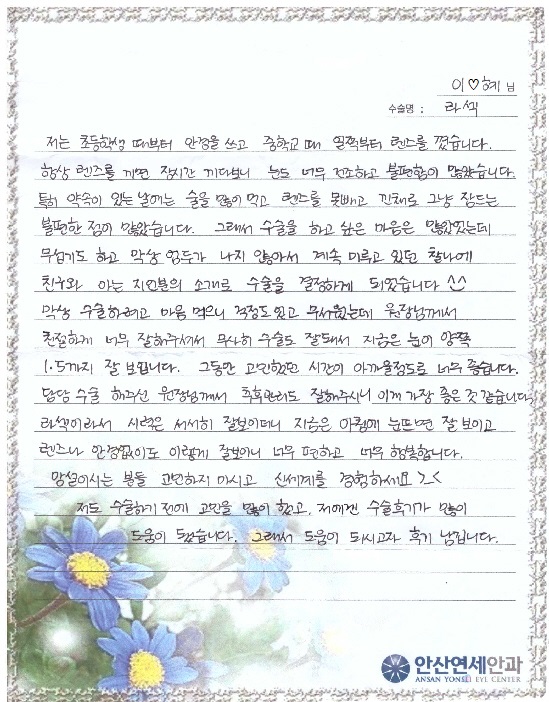 이♡혜 님
수술명 : 라섹
저는 초등학생 때부터 안경을 쓰고 중학교 때 일찍부터 렌즈를 꼈습니다.
항상 렌즈를 끼면 장시간 끼다보니 눈도 너무 건조하고 불편함이 많았습니다.
특히 약속이 있는 날에는 술을 많이 먹고 렌즈를 못빼고 낀채로 그냥 잠드는
불편한 점이 많았습니다. 그래서 수술을 하고 싶은 마음은 많았었는데
무섭기도 하고 막상 엄두가 나지 않아서 계속 미루고 있던 찰나에
친구와 아는 지인분의 소개로 수술을 결정하게 되었습니다 ^^
막상 수술하려고 마음 먹으니 걱정도 있고 무서웠는데 원장님께서
친절하게 너무 잘해주셔서 무사히 수술도 잘돼서 지금은 눈이 양쪽
1.5까지 잘 보입니다. 그동안 고민했던 시간이 아까울정도로 너무 좋습니다.
담당 수술 해주신 원장님께서 추후관리도 잘해주시니 이게 가장 좋은 것 같습니다.
라섹이라서 시력은 서서히 잘보이더니 지금은 아침에 눈뜨면 잘 보이고
렌즈나 안경없이도 이렇게 잘보이니 너무 편하고 너무 행복합니다.
망설이시는 분들 고민하지 마시고 신세계를 경험하세요 >.<
저도 수술하기 전에 고민을 많이 했고, 저에겐 수술후기가 많이
도움이 됐습니다. 그래서 도움이 되시고자 후기 남깁니다.
안산연세안과
ANSAN YONSEI EYE CENTER